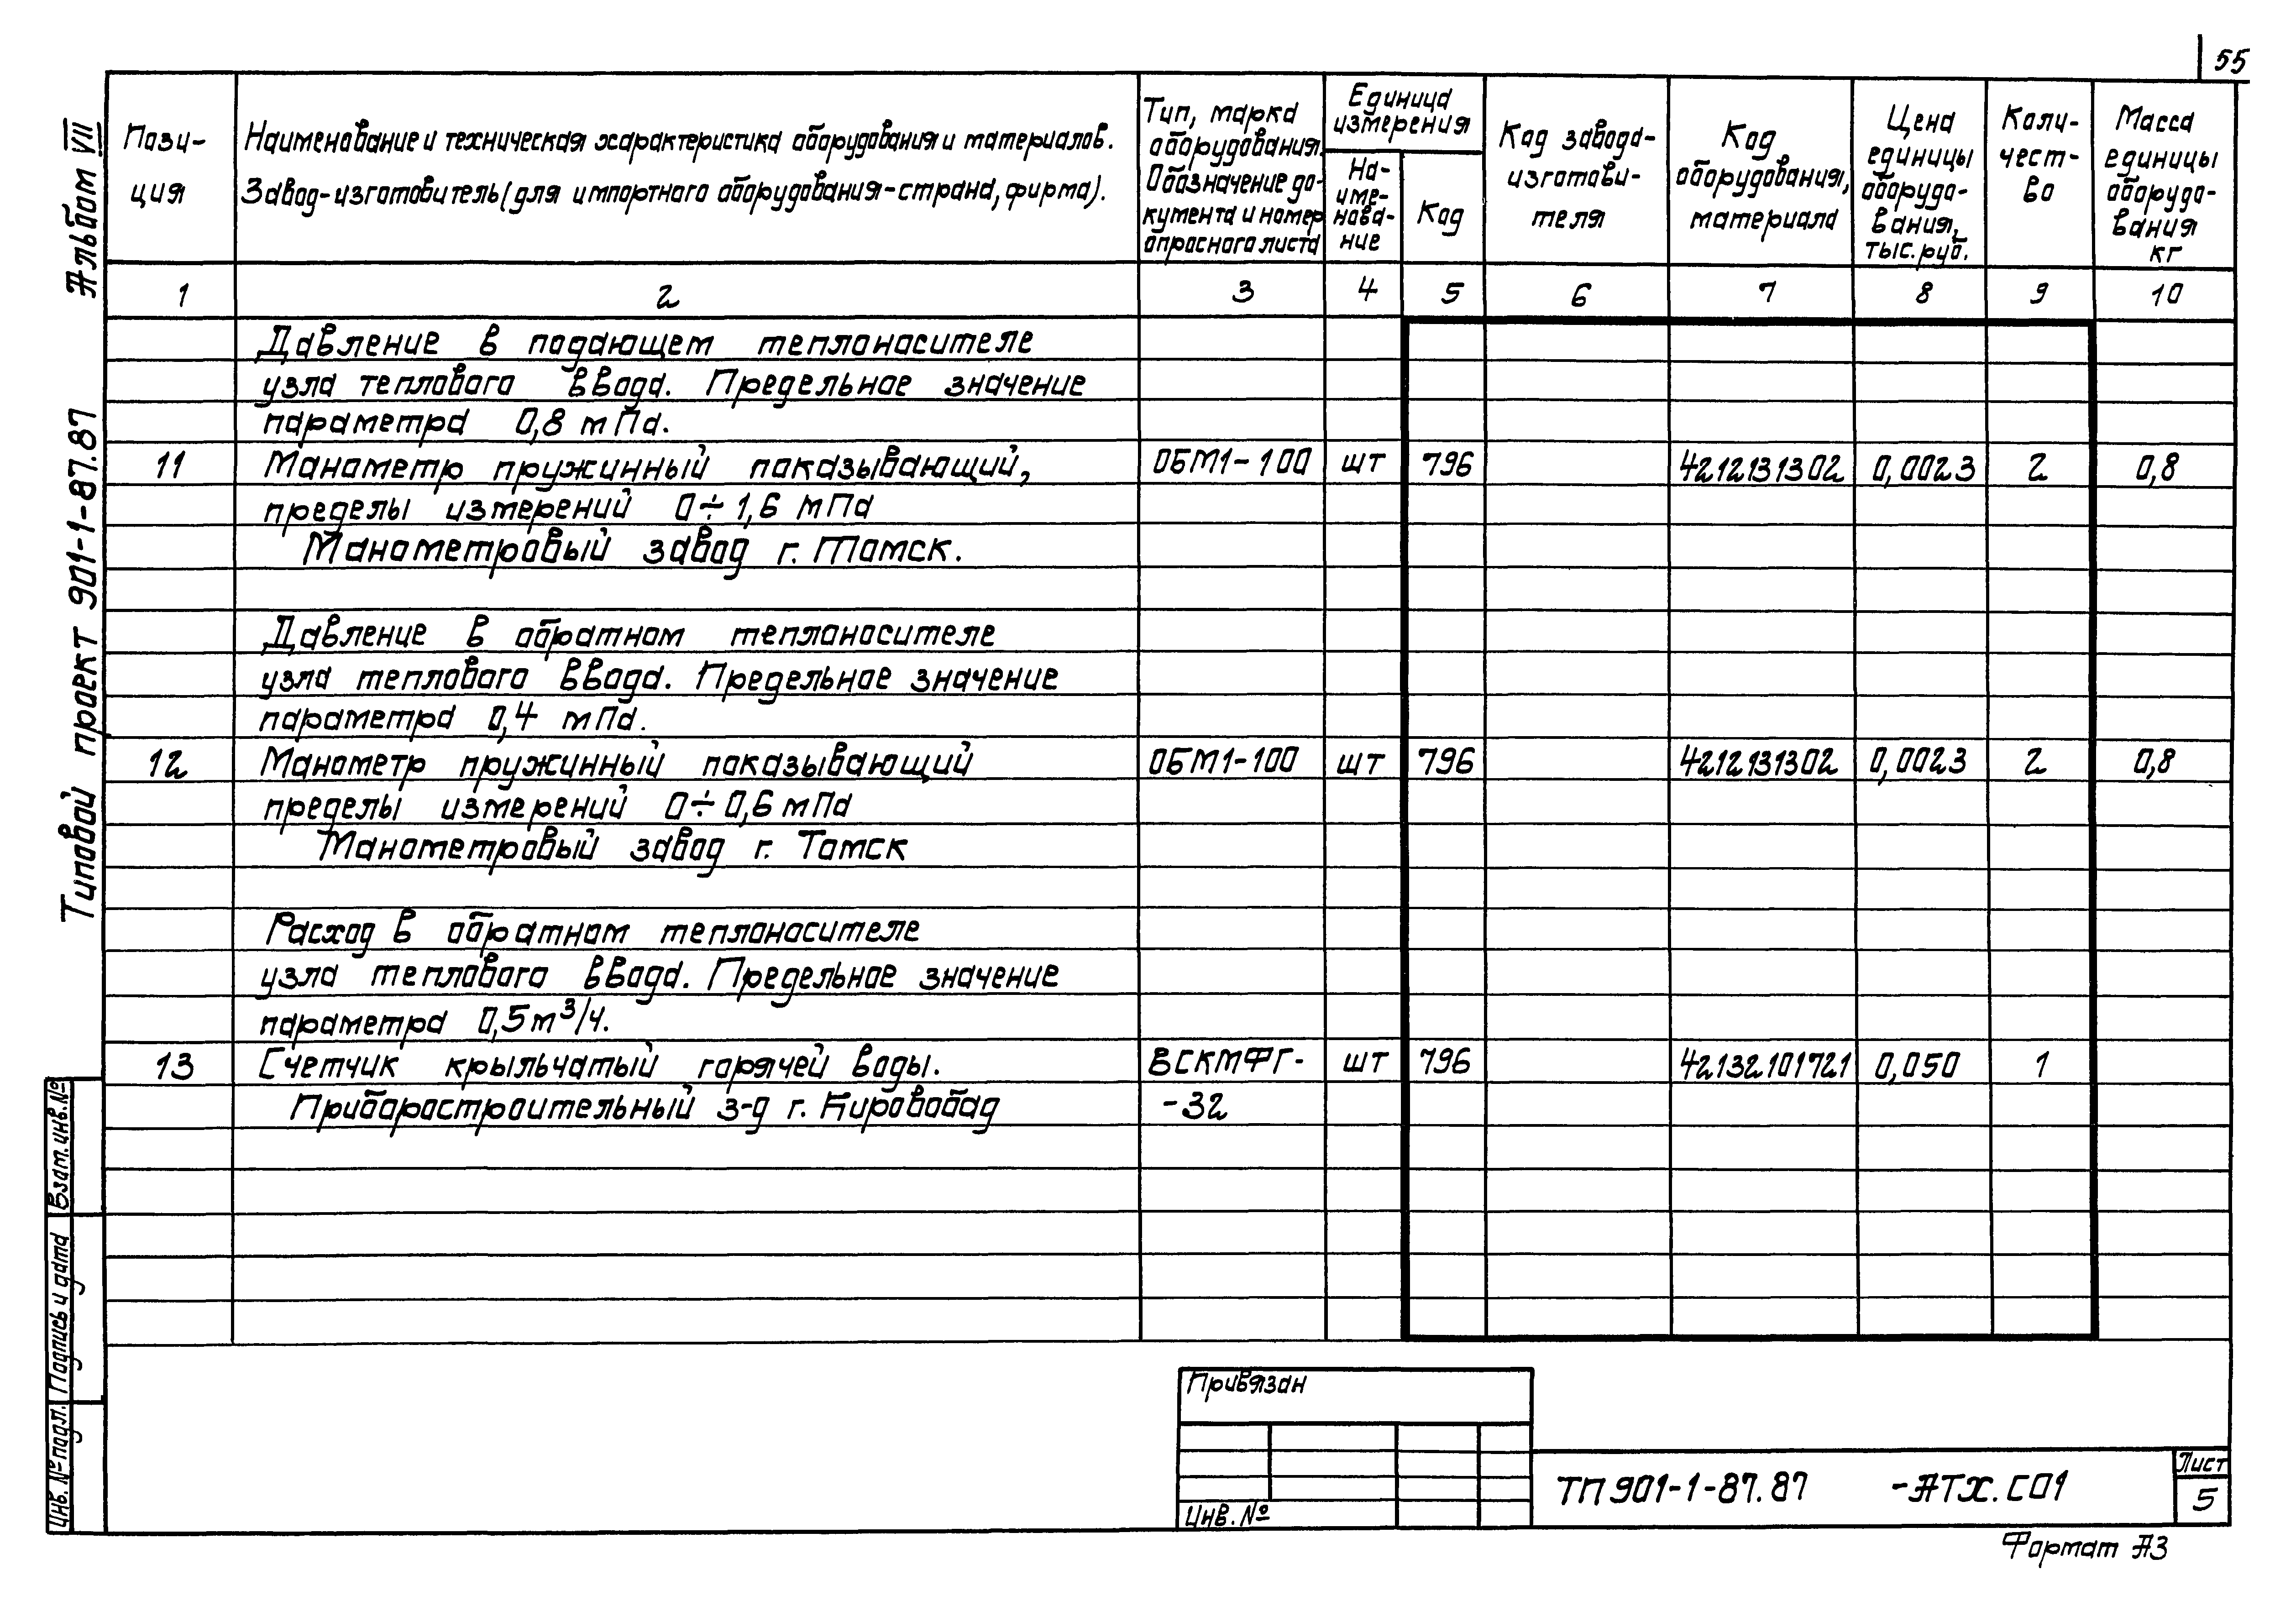 55
Альбом VII
Типовой проект 901-1-87.87
Пози-
ция
Наименование и техническая характеристика оборудования и материалов.
Завод-изготовитель (для импортного оборудования-страна, фирма).
Тип, марка
оборудования.
Обозначение до-
кумента и номер
опросного листа
Единица
измерения
На-
име-
нова-
ние
Код
Код завода-
изготови-
теля
Код
оборудования,
материала
Цена
единицы
оборудо-
вания,
тыс. руб.
Коли-
чест-
во
Масса
единицы
оборудо-
вания
кг
1 2 3 4 5 6 7 8 9 10
Давление в подающем теплоносителе
узла теплового ввода. Предельное значение
параметра 0,8 мПа.
11 Манометр пружинный показывающий, ОБМ1-100 шт 796 4212131302 0,0023 2 0,8
пределы измерений 0÷1,6 мПа
Манометровый завод г. Томск.
Давление в обратном теплоносителе
узла теплового ввода. Предельное значение
параметра 0,4 мПа.
12 Манометр пружинный показывающий ОБМ1-100 шт 796 4212131302 0,0023 2 0,8
пределы измерений 0÷0,6 мПа
Манометровый завод г. Томск
Расход в обратном теплоносителе
узла теплового ввода. Предельное значение
параметра 0,5 м³/ч.
13 Счетчик крыльчатый горячей воды. ВСКМФГ- шт 796 42132101721 0,050 1
Приборостроительный з-д г. Кировобад -32
Взам. инв. №
Подпись и дата
Инв. № подл.
Привязан
Инв. №
ТП 901-1-87.87 -АТХ.СО1
Лист
5
Формат А3